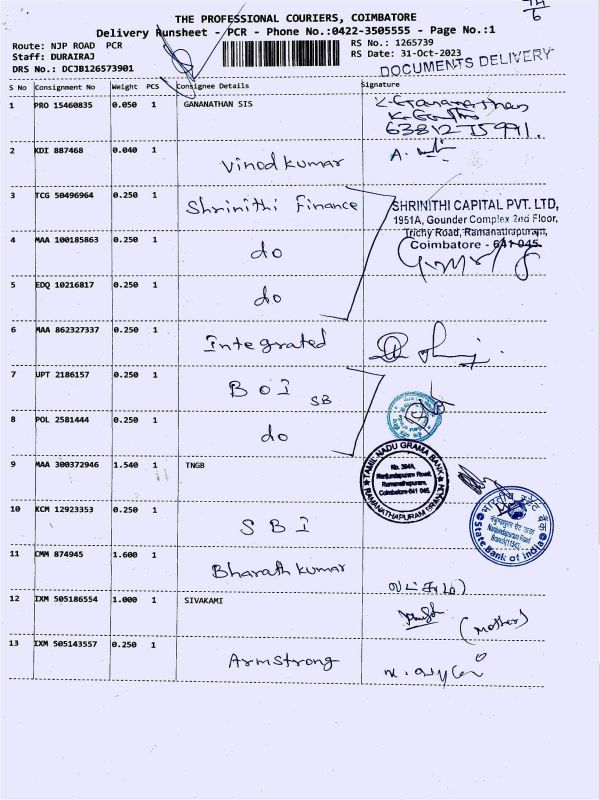 THE PROFESSIONAL COURIERS, COIMBATORE
Delivery Runsheet - PCR - Phone No.:0422-3505555 - Page No.:1
Route: NJP ROAD PCR
Staff: DURAIRAJ
DRS No.: DCJB126573901
RS No.: 1265739
RS Date: 31-Oct-2023
DOCUMENTS DELIVERY
S No Consignment No Weight PCS Consignee Details Signature
1 PRO 15460835 0.050 1 GANANATHAN SIS
2 KDI 887468 0.040 1 Vinod kumar
3 TCG 50496964 0.250 1 Shrinithi Finance
SHRINITHI CAPITAL PVT. LTD,
1951A, Gounder Complex 2nd Floor,
Trichy Road, Ramanathapuram,
Coimbatore - 641 045.
4 MAA 100185863 0.250 1 do
5 EDQ 10216817 0.250 1 do
6 MAA 862327337 0.250 1 Integrated
7 UPT 2186157 0.250 1 BOI SB
8 POL 2581444 0.250 1 do
9 MAA 300372946 1.540 1 TNGB
TAMIL NADU GRAMA BANK
No. 394A,
Ramanathapuram,
Coimbatore-641 045.
RAMANATHAPURAM BRANCH
10 KCM 12923353 0.250 1 SBI
भारतीय स्टेट बैंक
State Bank of India
11 CMM 874945 1.600 1 Bharath kumar
12 IXM 505186554 1.000 1 SIVAKAMI (mother)
13 IXM 505143557 0.250 1 Armstrong